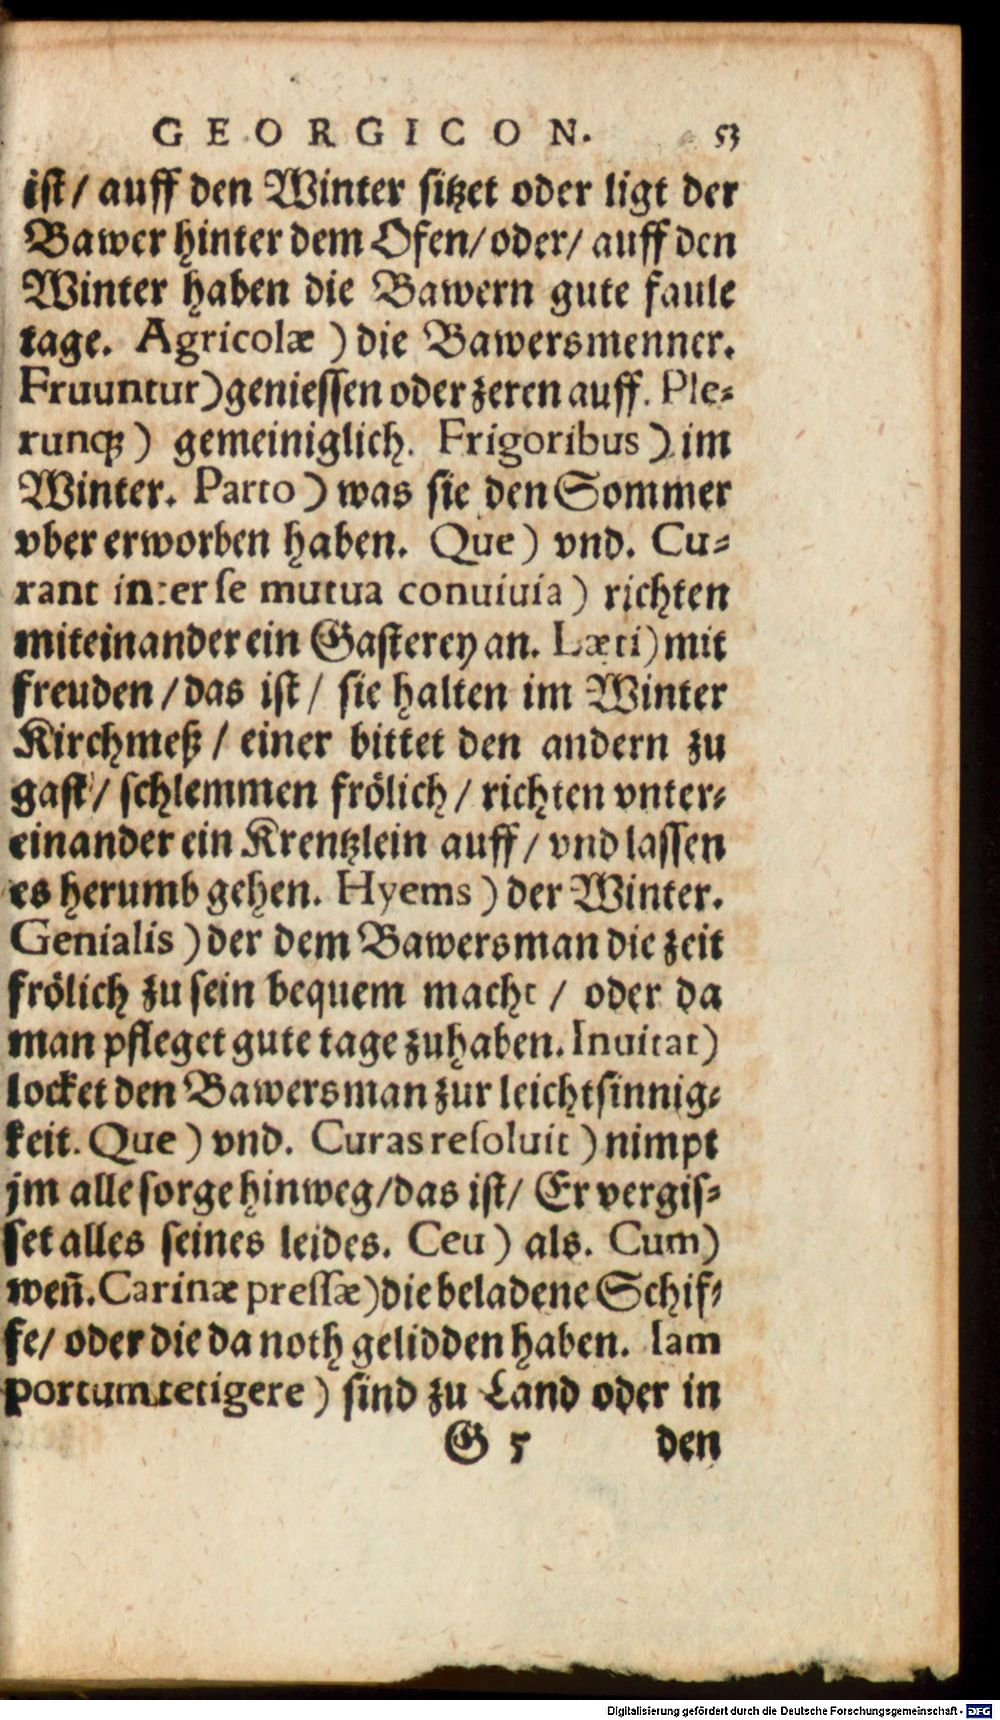 GEORGICON. 53
ist/ auff den Winter sitzet oder ligt der
Bawer hinter dem Ofen/ oder/ auff den
Winter haben die Bawern gute faule
tage. Agricolæ ) die Bawersmenner.
Fruuntur) geniessen oder zeren auff. Ple-
runqꝫ ) gemeiniglich. Frigoribus ) im
Winter. Parto ) was sie den Sommer
vber erworben haben. Que ) vnd. Cu-
rant inter se mutua conuiuia ) richten
miteinander ein Gasterey an. Læti) mit
freuden / das ist / sie halten im Winter
Kirchmeß / einer bittet den andern zu
gast / schlemmen frölich / richten vnter-
einander ein Krentzlein auff / vnd lassen
es herumb gehen. Hyems ) der Winter.
Genialis ) der dem Bawersman die zeit
frölich zu sein bequem macht / oder da
man pfleget gute tage zuhaben. Inuitat)
locket den Bawersman zur leichtsinnig-
keit. Que ) vnd. Curas resoluit ) nimpt
jm alle sorge hinweg/ das ist/ Er vergis-
set alles seines leides. Ceu ) als. Cum)
weñ. Carinæ pressæ) die beladene Schif-
fe/ oder die da noth gelidden haben. Iam
portum tetigere ) sind zu Land oder in
G 5 den
Digitalisierung gefördert durch die Deutsche Forschungsgemeinschaft - DFG